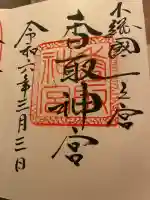 下総國一之宮
香取神宮
令和六年三月三日